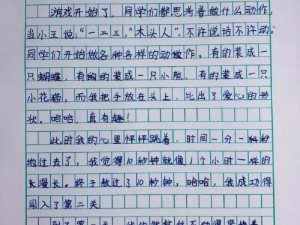 游戏开始了，同学们都思考着做什么动作，
当小王说，“一二三，木头人”，不许说话不许动，
同学们开始做各种各样的动做作。有的装成一
只蝴蝶，有的的装成一只小狼，有的装成一只
小花猫，而我把手放在头上，比出了爱心的形
状，哈哈，真有趣！
此时我的心里怦怦跳着，时间一分一秒
地过去了，我觉得10秒钟就像1个小时一样的
长漫长。终于熬过了10秒钟，哈哈，我成功得
闯入了第二关